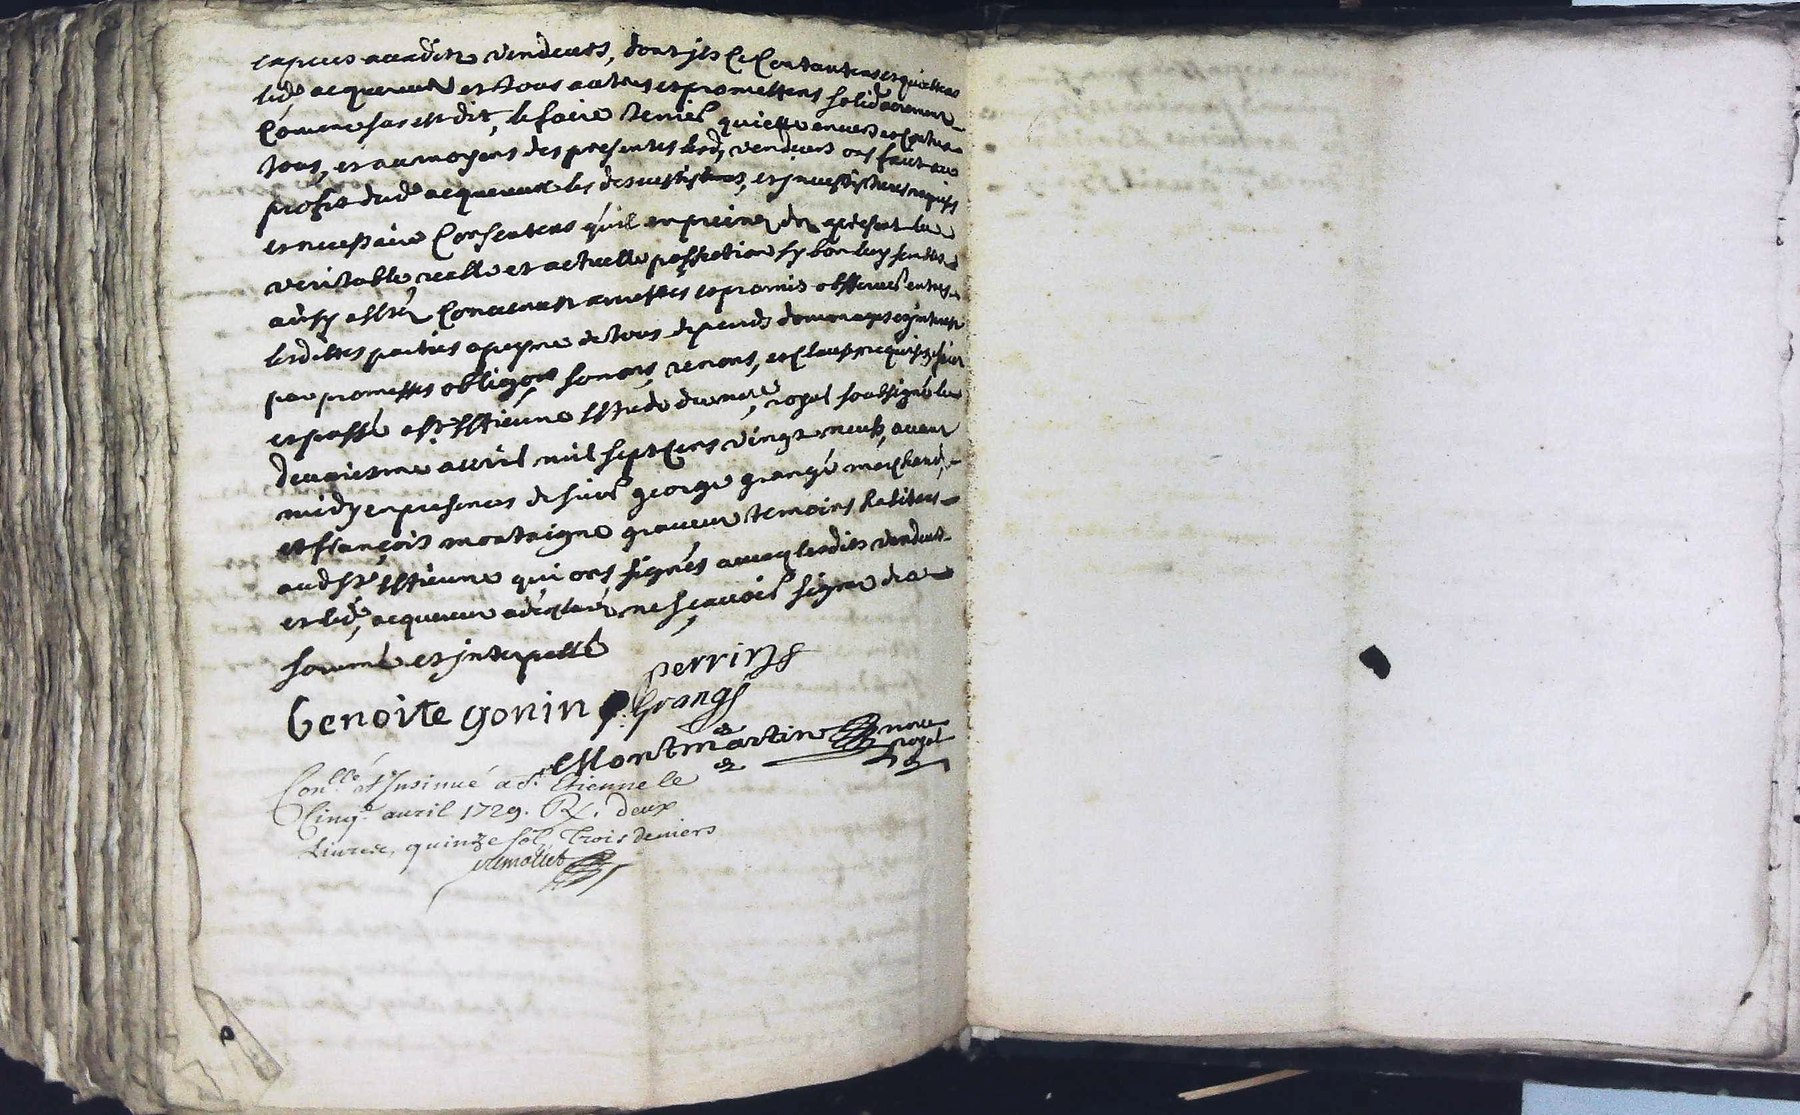 especes auxdits vendeurs, dont jls se Contantens et quictens
led.e acquereur et tous autres et promettens solidairement
Comme sus est dit, le faire tenir quicte envers et Contre
tous, et au moyens des presentes lesd. vendeurs ons fait au
profit dud.e acquereur les devestis et jnvestitures requises
et necessaire Consentens qu'il en prenne des apresent la
veritable reelle et actuelle possession sy bon luy semble
ainsy a esté Convenu et promis observer entres
lesdittes parties a peyne de tous depends dommages et jnterest
par promesses obligons soumons, renons, et Clauses requises, fait
et passé a St Estienne Estude du no.re royal soubsigné le
deuxiesme avril mil sept Cens vingt neuf, avant
midy en presences de sieur george grangé marchand,
et françois montaigne graveur temoins habitans
aud St Estienne qui ons signés avecq lesdits vendeurs
et led.e acquereur a declaré ne sçavoir signer de ce
sommé et jnterpellé
benoite gonin perrin
g. Grangé
Montmartin no.re
royal
Con.llé et Insinué a St Etienne le
Cinq.e avril 1729. Rx. deux
Livres, quinze sol Trois deniers